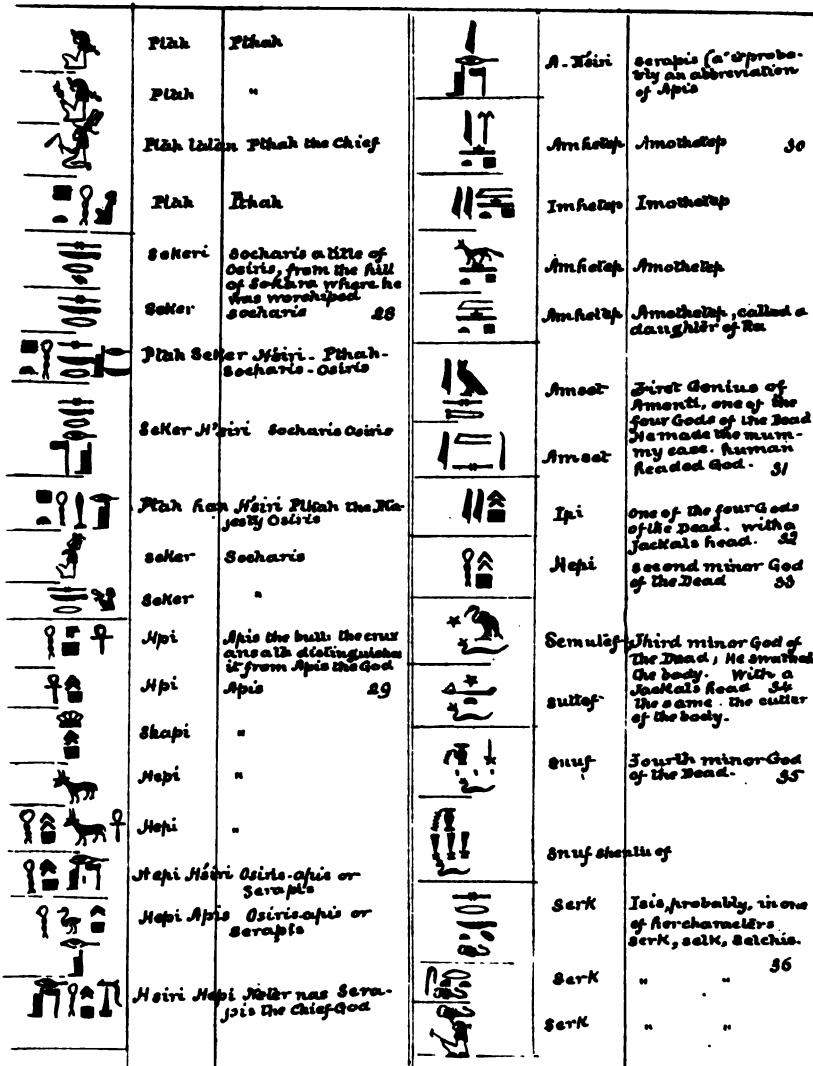 Ptah Pthah
Ptah "
Ptah tatan Pthah the Chief
Ptah Pthah
Sekeri Socharis a title of
Osiris, from the hill
of Sokara where he
was worshiped
Seker Socharis 28
Ptah Seker H'siri - Pthah-
Socharis-Osiris
Seker H'siri Socharis Osiris
Ptah han H'siri Pthah the Ma-
jesty Osiris
Seker Socharis
Seker "
Hpi Apis the bull: the crux
ansata distinguishes
it from Apis the God
Hpi Apis 29
Shapi "
Hepi "
Hepi "
Hepi H'siri Osiris-apis or
Serapis
Hepi Apis Osiris-apis or
Serapis
Hsiri Hepi Neter nas Sera-
pis the Chief God
A-H'siri Serapis (a is proba-
bly an abbreviation
of Apis
Amhetep Amothetep 30
Imhetep Imothetep
Amhetep Amothetep
Amhetep Amothetep, called a
daughter of Ra
Amset First Genius of
Amenti, one of the
four Gods of the Dead
He made the mum-
Amset my case. human
headed God. 31
Ipi One of the four Gods
of the Dead. with a
Jackals head. 32
Hepi Second minor God
of the Dead 33
Semutef Third minor God of
the Dead; He swathed
the body. With a
Jackals head 34
Suttef the same. the cutter
of the body.
Snuf Fourth minor God
of the Dead. 35
Snuf
Serk Isis, probably, in one
of her characters
Serk, selk, Selchis.
36
Serk " "
Serk " "